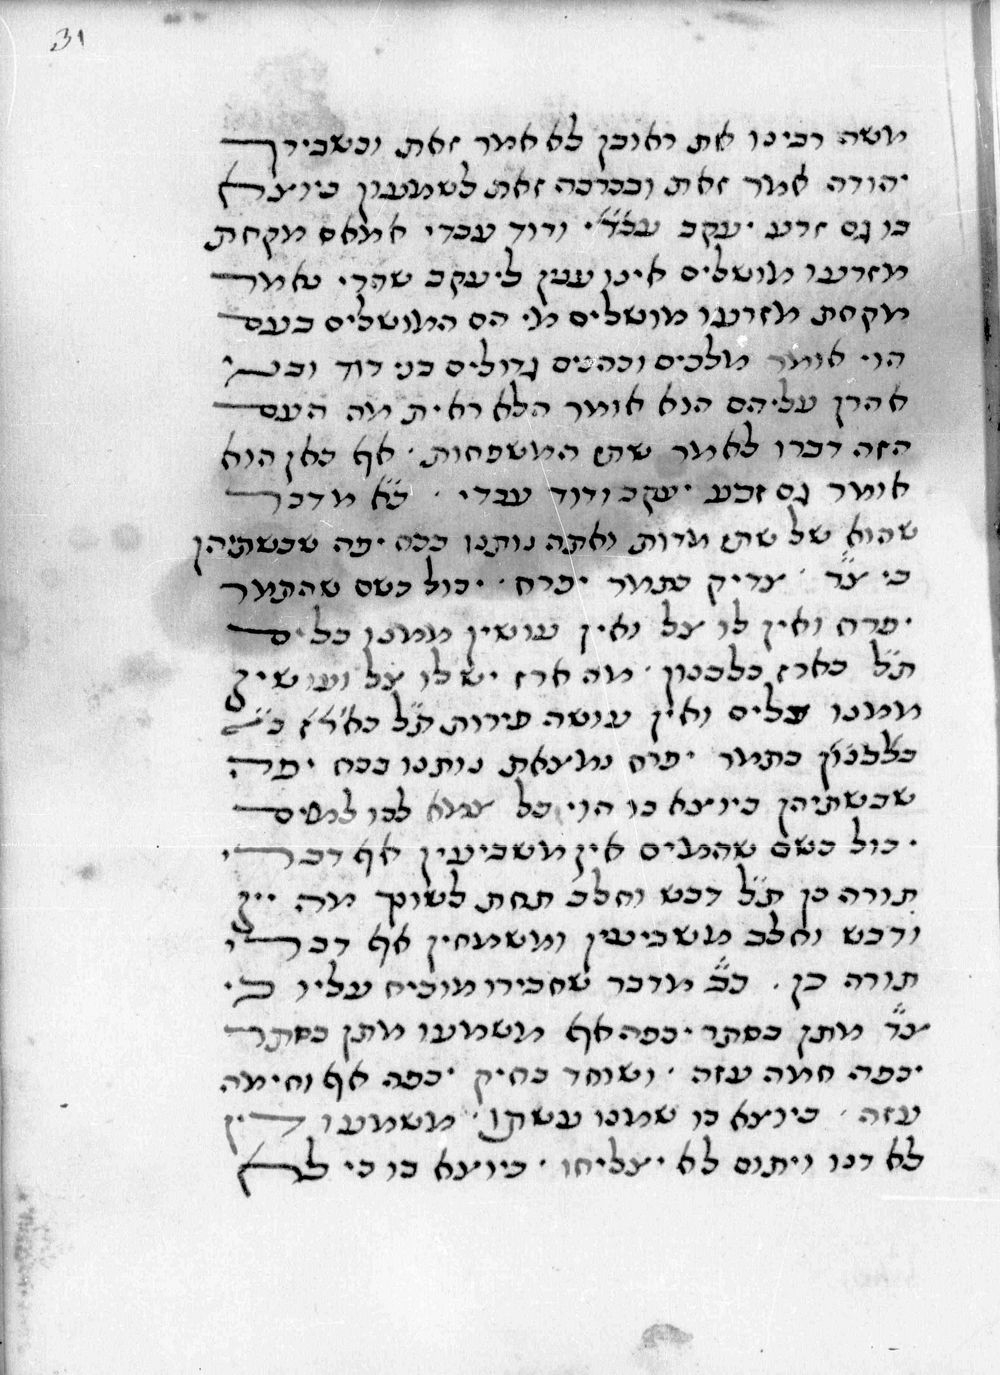 31
משה רבינו את ראובן לא אמר זאת וכשבירך
יהודה אמר זאת וברכה זאת לשמעון כיוצא
בו גם זרע יעקב עבדי ודוד עבדי אמאס מקחת
מזרעו מושלים אינו ענין ליעקב שהרי נאמר
מקחת מזרעו מושלים מי הם המושלים בעם
הוי אומר מלכים וכהנים גדולים בני דוד ובני
אהרן עליהם הוא אומר הלא ראית מה העם
הזה דברו לאמר שתי המשפחות ׳ אף כאן הוא
אומר גם זרע יעקב ודוד עבדי ׳ כ״א מדבר
שהוא של שתי מדות ואתה נותנו ככח יפה שבשתיהן
כי צ״ד ׳ צדיק כתמר יפרח ׳ יכול כשם שהתמר
יפרח ואין לו צל ואין עושין ממנו כלים
ת״ל כארז בלבנון ׳ מה ארז יש לו צל ועושין
ממנו כלים ואין עושה פירות ת״ל
כתמר יפרח נמצאת נותנו ככח יפה
שבשתיהן כיוצא בו הוי כל צמא לכו למים
יכול כשם שהמים אין משביעין אף דברי
תורה כן ת״ל דבש וחלב תחת לשונך מה יין
ודבש וחלב משביעין ומשמחין אף דברי
תורה כן . כ״ב מדבר שחבירו מוכיח עליו כי
צ״ד מתן בסתר יכפה אף משמעו מתן בסתר
יכפה חמה עזה ׳ ושוחד בחיק יכפה אף וחימה
עזה ׳ כיוצא בו שמנו עשתו ׳ משמעו דין
לא דנו ויתום לא יצליחו ׳ כיוצא בו כי לא